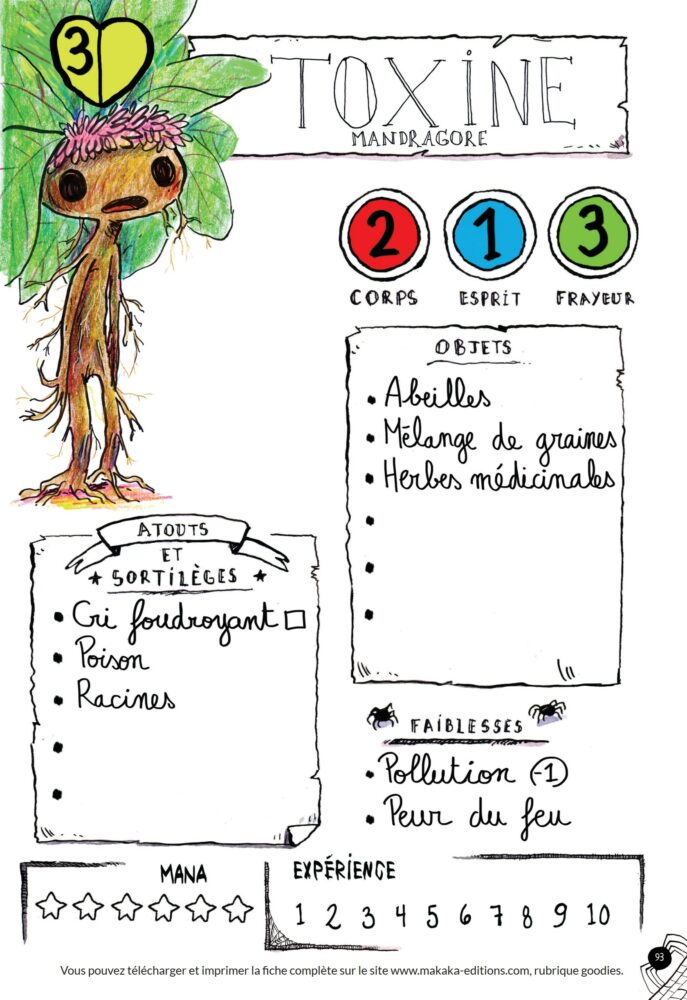 3
TOXiNE
MANDRAGORE
2 1 3
CORPS ESPRiT FRAYEUR
OBJETS
• Abeilles
• Mélange de graines
• Herbes médicinales
•
•
•
ATOUTS
ET
★ SORTiLÈGES ★
• Cri foudroyant □
• Poison
• Racines
•
•
FAiBLESSES
• Pollution (-1)
• Peur du feu
MANA
EXPÉRiENCE
1 2 3 4 5 6 7 8 9 10
93
Vous pouvez télécharger et imprimer la fiche complète sur le site www.makaka-editions.com, rubrique goodies.